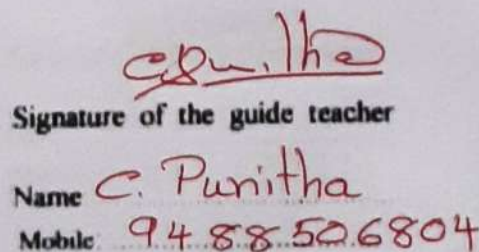 Signature of the guide teacher
Name C. Punitha
Mobile: 9488506804